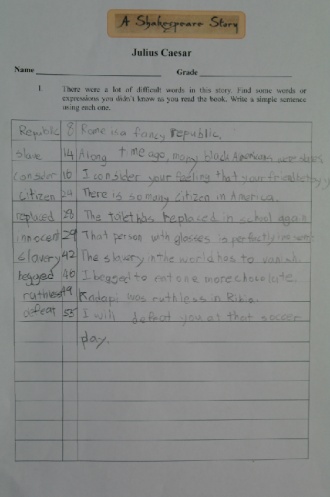 A Shakespeare Story
Julius Caesar
Name Grade
1. There were a lot of difficult words in this story. Find some words or
expressions you didn't know as you read the book. Write a simple sentence
using each one.
Republic 8 Rome is a fancy republic.
slave 14 Along time ago, many black Americans were slaves
consider 16 I consider your feeling that your friend
citizen 24 There is so many citizen in America.
replaced 23 The toilet has replaced in school again
innocent 29 That person with glasses is perfectly innocent
slavery 42 The slavery in the world has to vanish.
begged 46 I begged to eat one more chocolate.
ruthless 49 was ruthless in
defeat 55 I will defeat you at that soccer
play.